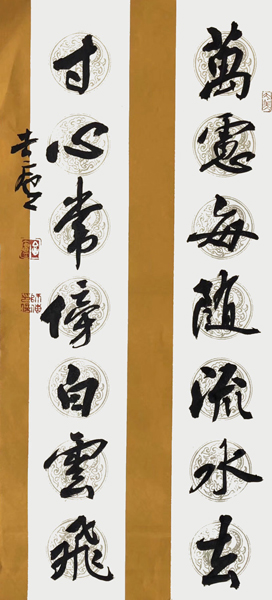 萬慮每随流水去
寸心常傍白雲飛